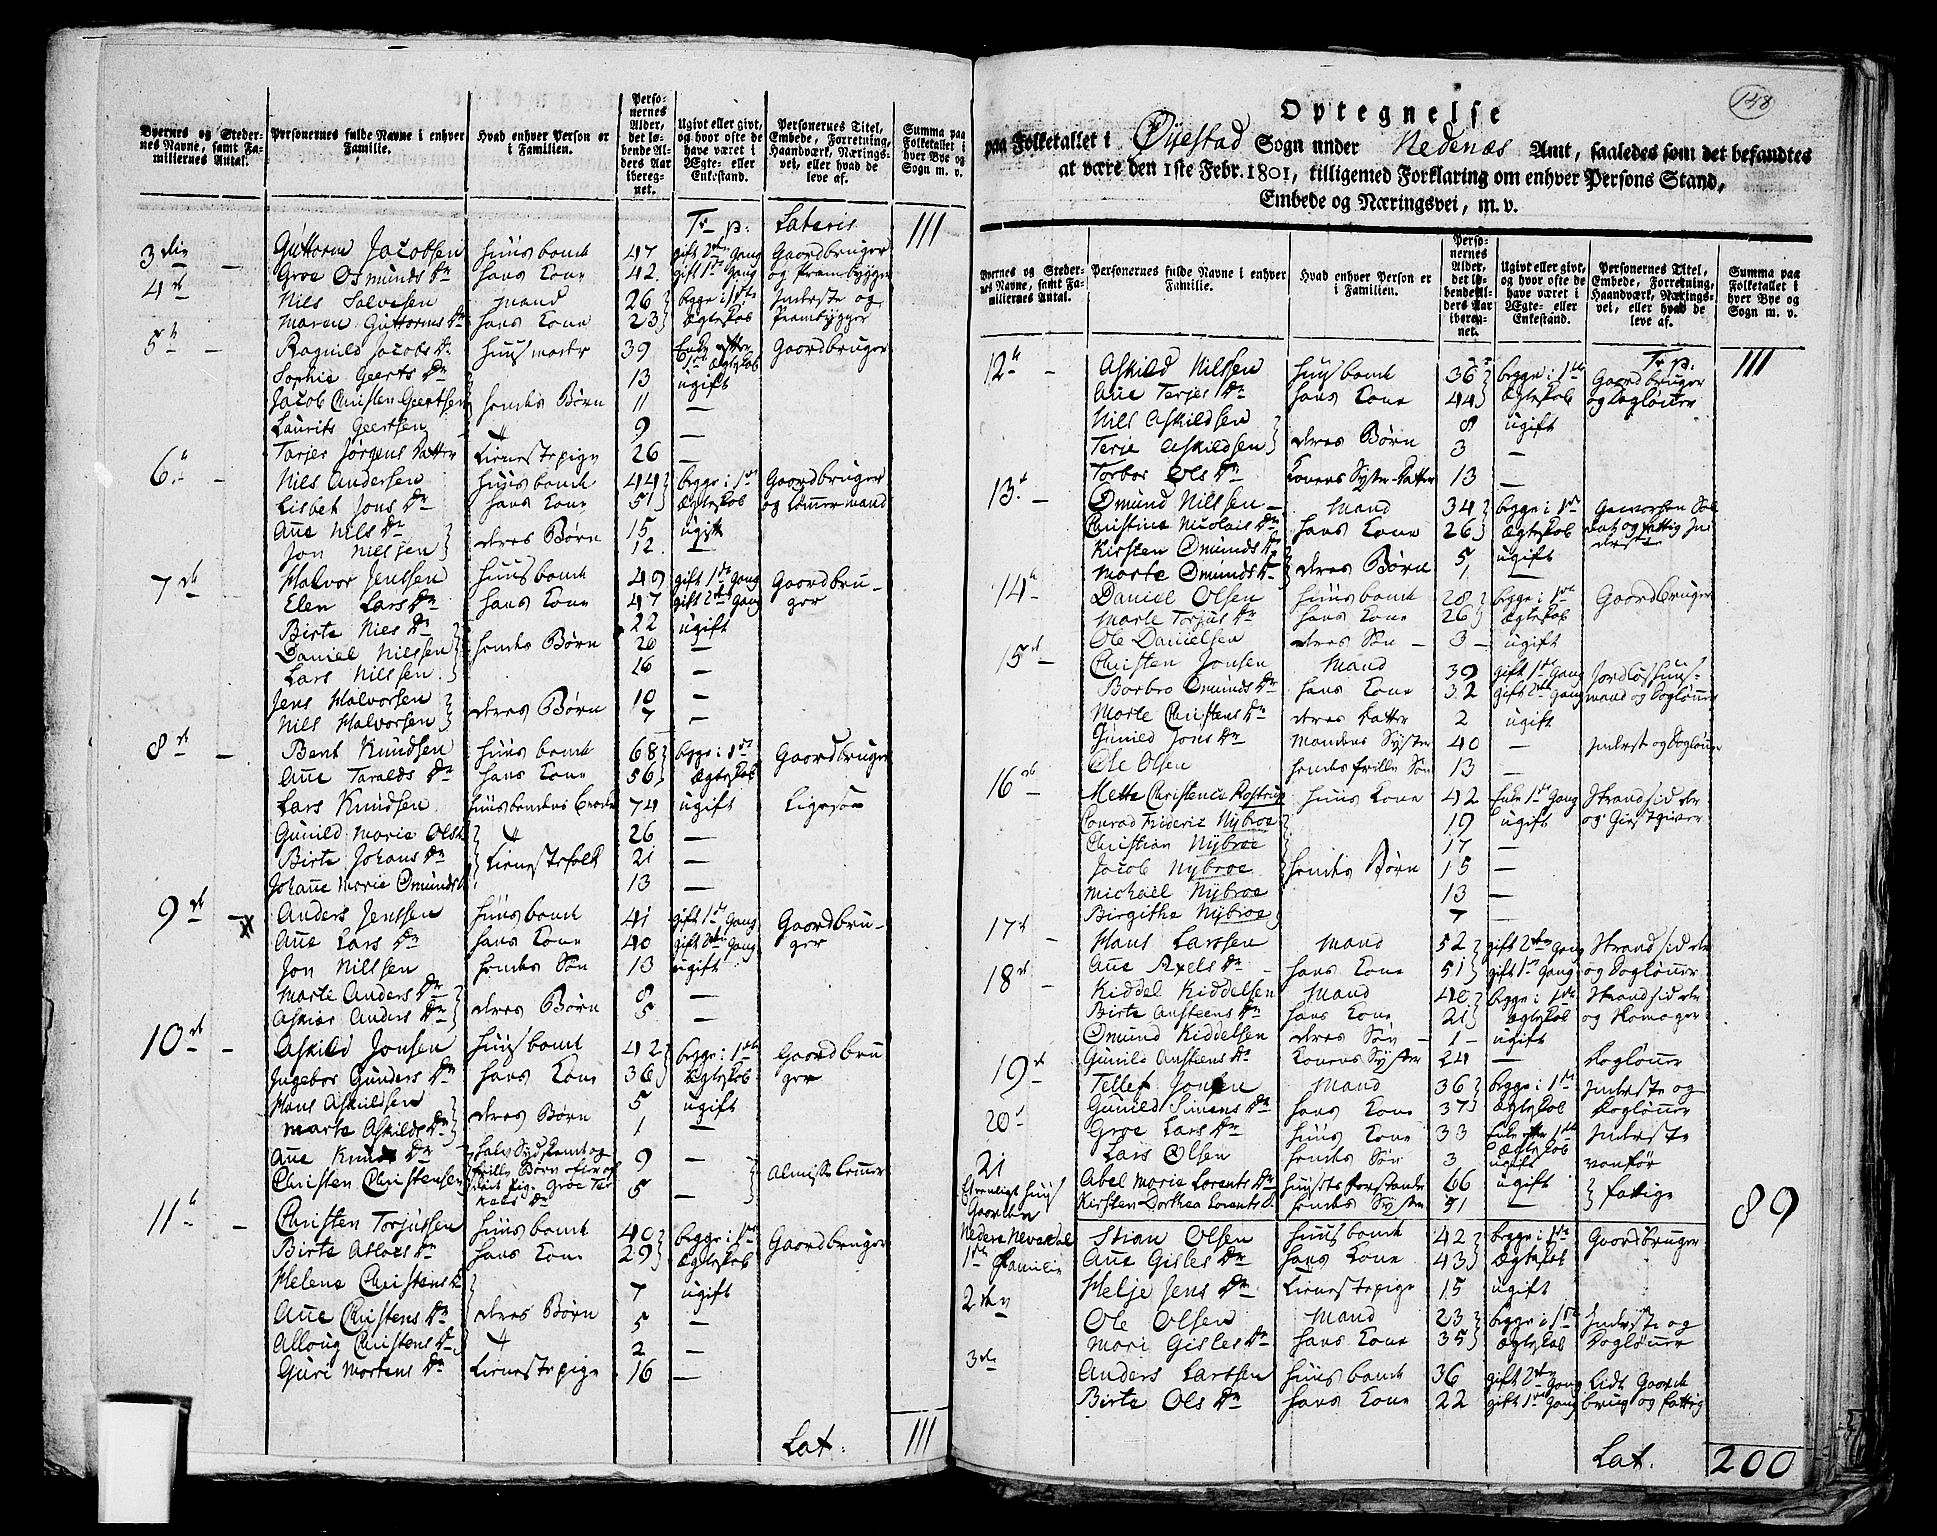 Byernes og Steder-
nes Navne, samt Fa-
miliernes Antal.
Personernes fulde Navne i enhver
Familie.
Hvad enhver Person er
i Familien.
Perso-
nernes
Alder,
det lø-
bende Al-
ders Aar
ibereg-
net.
Ugivt eller givt,
og hvor ofte de
have været i
Ægte- eller
Enkestand.
Personernes Titel,
Embede, Forretning,
Haandværk, Nærings-
vei, eller hvad de
leve af.
Summa paa
Folketallet i
hver Bye og
Sogn m. v.
Tr p: Lateris 111
3die Guttorm Jacobsen Huusbond 47 gift 2den Gang Gaardbruger
Groe Osmunds Dr hans Kone 42 gift 1ste Gang og Prambygger
4de Nils Salvesen Mand 26 begge i 1ste Inderste og
Maren Guttorms Dr hans Kone 23 Ægteskab Prambygger
5te Ragnild Jacobs Dr Huusmoder 39 Enke efter 1ste Ægteskab Gaardbruger
Sophie Geerts Dr 13 ugift
Jacob Christen Geertsen hendes Børn 11 —
Laurits Geertsen 9 —
Tarjer Jørgens Datter Tienestepige 26 —
6te Nils Andersen Huusbond 44 begge i 1ste Gaardbruger
Lisbet Jons Dr hans Kone 51 Ægteskab og Tømmermand
Ane Nils Dr deres Børn 15 ugift
Jon Nilssen 12 —
7de Halvor Jenssen Huusbond 49 gift 1ste Gang Gaardbru-
Elen Lars Dr hans Kone 47 gift 2den Gang ger
Birte Niels Dr 22 ugift
Daniel Nilssen hendes Børn 20 —
Lars Nilssen 16 —
Jens Halvorsen deres Børn 10 —
Nils Halvorsen 7 —
8de Bent Knudsen Huusbond 68 begge i 1ste Gaardbruger
Ane Taralds Dr hans Kone 56 Ægteskab
Lars Knudsen Huusbondens Broder 74 ugift Ligesaa
Gunild Marie Ols Dr 26 —
Birte Johans Dr Tienestefolk 21 —
Johane Marie Omunds Dr 13 —
9de Anders Jenssen Huusbond 41 gift 1ste Gang Gaardbru-
Ane Lars Dr hans Kone 40 gift 2den Gang ger
Jon Nilssen hendes Søn 13 ugift
Marte Anders Dr deres Børn 8 —
Askier Anders Dr 5 —
10de Askild Jonsen Huusbond 42 begge i 1ste Gaardbru
Ingebor Gunders Dr hans Kone 36 Ægteskab ger
Hans Askildsen deres Børn 5 ugift
Marte Askilds Dr 1 —
Ane Knuds Dr 9 —
Christen Christensen 5 — Almisselemmer
11te Christen Torjussen Huusbond 40 begge i 1ste
Birte Aslacs Dr hans Kone 29 Ægteskab Gaardbruger
Helene Christens Dr 7 ugift
Ane Christens Dr deres Børn 5 —
Alloug Christens Dr 2 —
Guri Mortens Dr Tienestepige 16 —
Lat: 111
148
Optegnelse
paa Folketallet i Øyestad Sogn under Nedenæs Amt, saaledes som det befandtes
at være den 1ste Febr. 1801, tilligemed Forklaring om enhver Persons Stand,
Embede og Næringsvei, m. v.
Byernes og Steder-
nes Navne, samt Fa-
miliernes Antal.
Personernes fulde Navne i enhver
Familie.
Hvad enhver Person er
i Familien.
Perso-
nernes
Alder,
det lø-
bende Al-
ders Aar
ibereg-
net.
Ugivt eller givt,
og hvor ofte de
have været i
Ægte- eller
Enkestand.
Personernes Titel,
Embede, Forretning,
Haandværk, Nærings-
vei, eller hvad de
leve af.
Summa paa
Folketallet i
hver Bye og
Sogn m. v.
Tr p: 111
12te Askild Nilssen Huusbond 36 begge i 1ste Gaardbruger
Ane Terjes Dr hans Kone 44 Ægteskab og Dagløner
Nils Askildsen deres Børn 8 ugift
Terje Askildsen 3 —
Torbor Ols Dr Konens Syster-Datter 13 —
13de Omund Nilssen Mand 34 begge i 1ste Gevorben Sol
Christine Nicolais Dr hans Kone 26 Ægteskab dat og fattig In
Kirsten Omunds Dr deres Børn 5 ugift derste
Marte Omunds Dr 1 —
14de Daniel Olsen Huusbond 28 begge i 1ste Gaardbruger
Marte Torjus Dr hans Kone 26 Ægteskab
Ole Danielsen deres Søn 3 ugift
15de Christen Jonsen Mand 39 gift 1ste Gang Jordløs Huus-
Borbro Omunds Dr hans Kone 32 gift 2den Gang mand og Dagløner
Marte Christens Dr deres Datter 2 ugift
Gunild Jons Dr Mandens Syster 40 — Inderst og Dagløner
Ole Olsen hendes frille Søn 13 —
16de Mette Christence Rostrup Huus Kone 42 Enke 1ste Gang Strandsidder
Conrad Frideric Nybroe 19 ugift og Giestgiver
Christian Nybroe 17 —
Jacob Nybroe hendes Børn 15 —
Michael Nybroe 13 —
Birgithe Nybroe 7 —
17de Hans Larssen Mand 52 gift 2den Gang Strandsidder
Ane Axels Dr hans Kone 51 gift 1ste Gang og Dagløner
18de Kiddel Kiddelsen Mand 40 begge i 1ste Strandsidder
Birte Ansteens Dr hans Kone 21 Ægteskab og Skomager
Omund Kiddelsen deres Søn 1 ugift
Gunild Ansteens Dr Konens Syster 24 — Dagløner
19de Tellef Jonsen Mand 36 begge i 1ste Inderste og
Gunild Simens Dr hans Kone 37 Ægteskab Dagløner
20de Groe Lars Dr Huus Kone 33 Enke efter 1ste Ægteskab Inderste
Lars Olsen hendes Søn 3 ugift vanfør
21 Abel Maria Lorents Dr Huusets forstander 66 ugift fattige
Kirsten Dorthea Lorents D. hendes Syster 51 —
89
Nedere Nevesdal Stian Olsen Huusbond 42 begge i 1ste Gaardbruger
1ste Familie Ane Gisles Dr hans Kone 43 Ægteskab
Helje Jens Dr Tienestepige 15 ugift
2den Ole Olsen Mand 23 begge i 1ste Inderste og
Mari Gisles Dr hans Kone 35 Ægteskab Dagløner
3die Anders Larssen Huusbond 36 gift 2den Gang Lidt Gaard
Birte Ols Dr hans Kone 22 gift 1ste Gang brug og fattig
Lat. 200